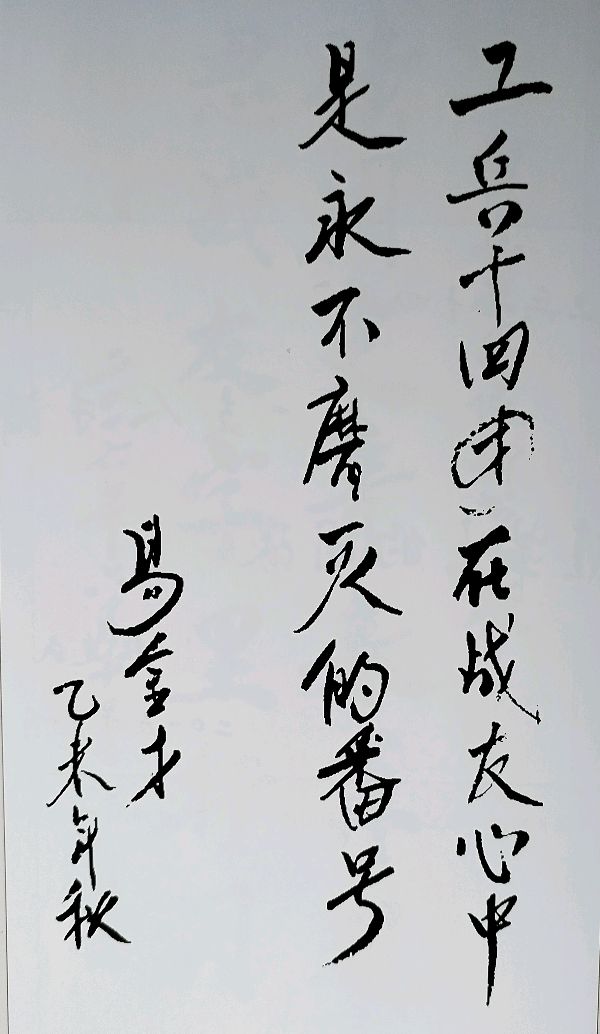 工兵十四团在战友心中
是永不磨灭的番号
金才
乙未年秋